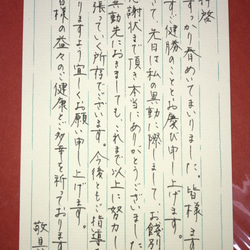 拝啓
すっかり春めいてまいりました。皆様ます
すご健勝のこととお慶び申し上げます。
て、先日は私の異動に際しまして、お餞別
感謝状まで頂き本当にありがとうございました
異動先におきましても、これまで以上に努力し
張っていく所存でございます。今後ともご指導
りますよう宜しくお願い申し上げます。
皆様の益々のご健康とご多幸を祈っております
敬具